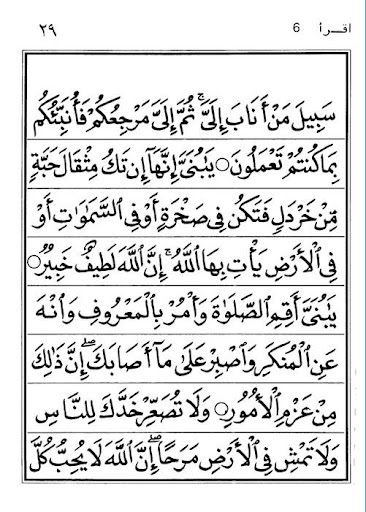 اقـــرأ 6 ٢٩
سَبِيلَ مَنْ أَنَابَ إِلَىَّ ۚ ثُمَّ إِلَىَّ مَرْجِعُكُمْ فَأُنَبِّئُكُم
بِمَا كُنتُمْ تَعْمَلُونَ ۝ يَٰبُنَىَّ إِنَّهَآ إِن تَكُ مِثْقَالَ حَبَّةٍ
مِّنْ خَرْدَلٍ فَتَكُن فِى صَخْرَةٍ أَوْ فِى ٱلسَّمَٰوَٰتِ أَوْ
فِى ٱلْأَرْضِ يَأْتِ بِهَا ٱللَّهُ ۚ إِنَّ ٱللَّهَ لَطِيفٌ خَبِيرٌ ۝
يَٰبُنَىَّ أَقِمِ ٱلصَّلَوٰةَ وَأْمُرْ بِٱلْمَعْرُوفِ وَٱنْهَ
عَنِ ٱلْمُنكَرِ وَٱصْبِرْ عَلَىٰ مَآ أَصَابَكَ ۖ إِنَّ ذَٰلِكَ
مِنْ عَزْمِ ٱلْأُمُورِ ۝ وَلَا تُصَعِّرْ خَدَّكَ لِلنَّاسِ
وَلَا تَمْشِ فِى ٱلْأَرْضِ مَرَحًا ۖ إِنَّ ٱللَّهَ لَا يُحِبُّ كُلَّ